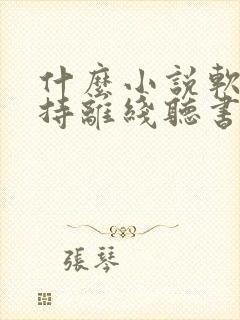 什麼小說軟
持離綫聽書
張琴